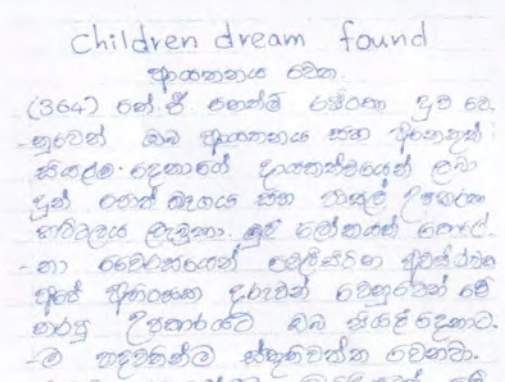 children dream found
ආයතනය වෙත.
(364) කේ. ජී නෙත්මි රෂිරණා දුව වෙ-
-නුවෙන් ඔබ ආයතනය සහ අනෙකුත්
සියළුම දෙනාගේ දායකත්වයෙන් ලබා
දුන් පොත් බෑගය සහ පාසල් උපකරණ
කට්ටලය ලැබුණා. මුළු ලෝකයක් පෙළේ-
-නා වෛරසයෙන් පෙලීසිටින අවස්ථාවක
අපේ අහිංසක දරුවන් වෙනුවෙන් මේ
කරපු උපකාරයට ඔබ සියළු දෙනාට-
-ම හදවතින්ම ස්තූතිවන්ත වෙනවා.